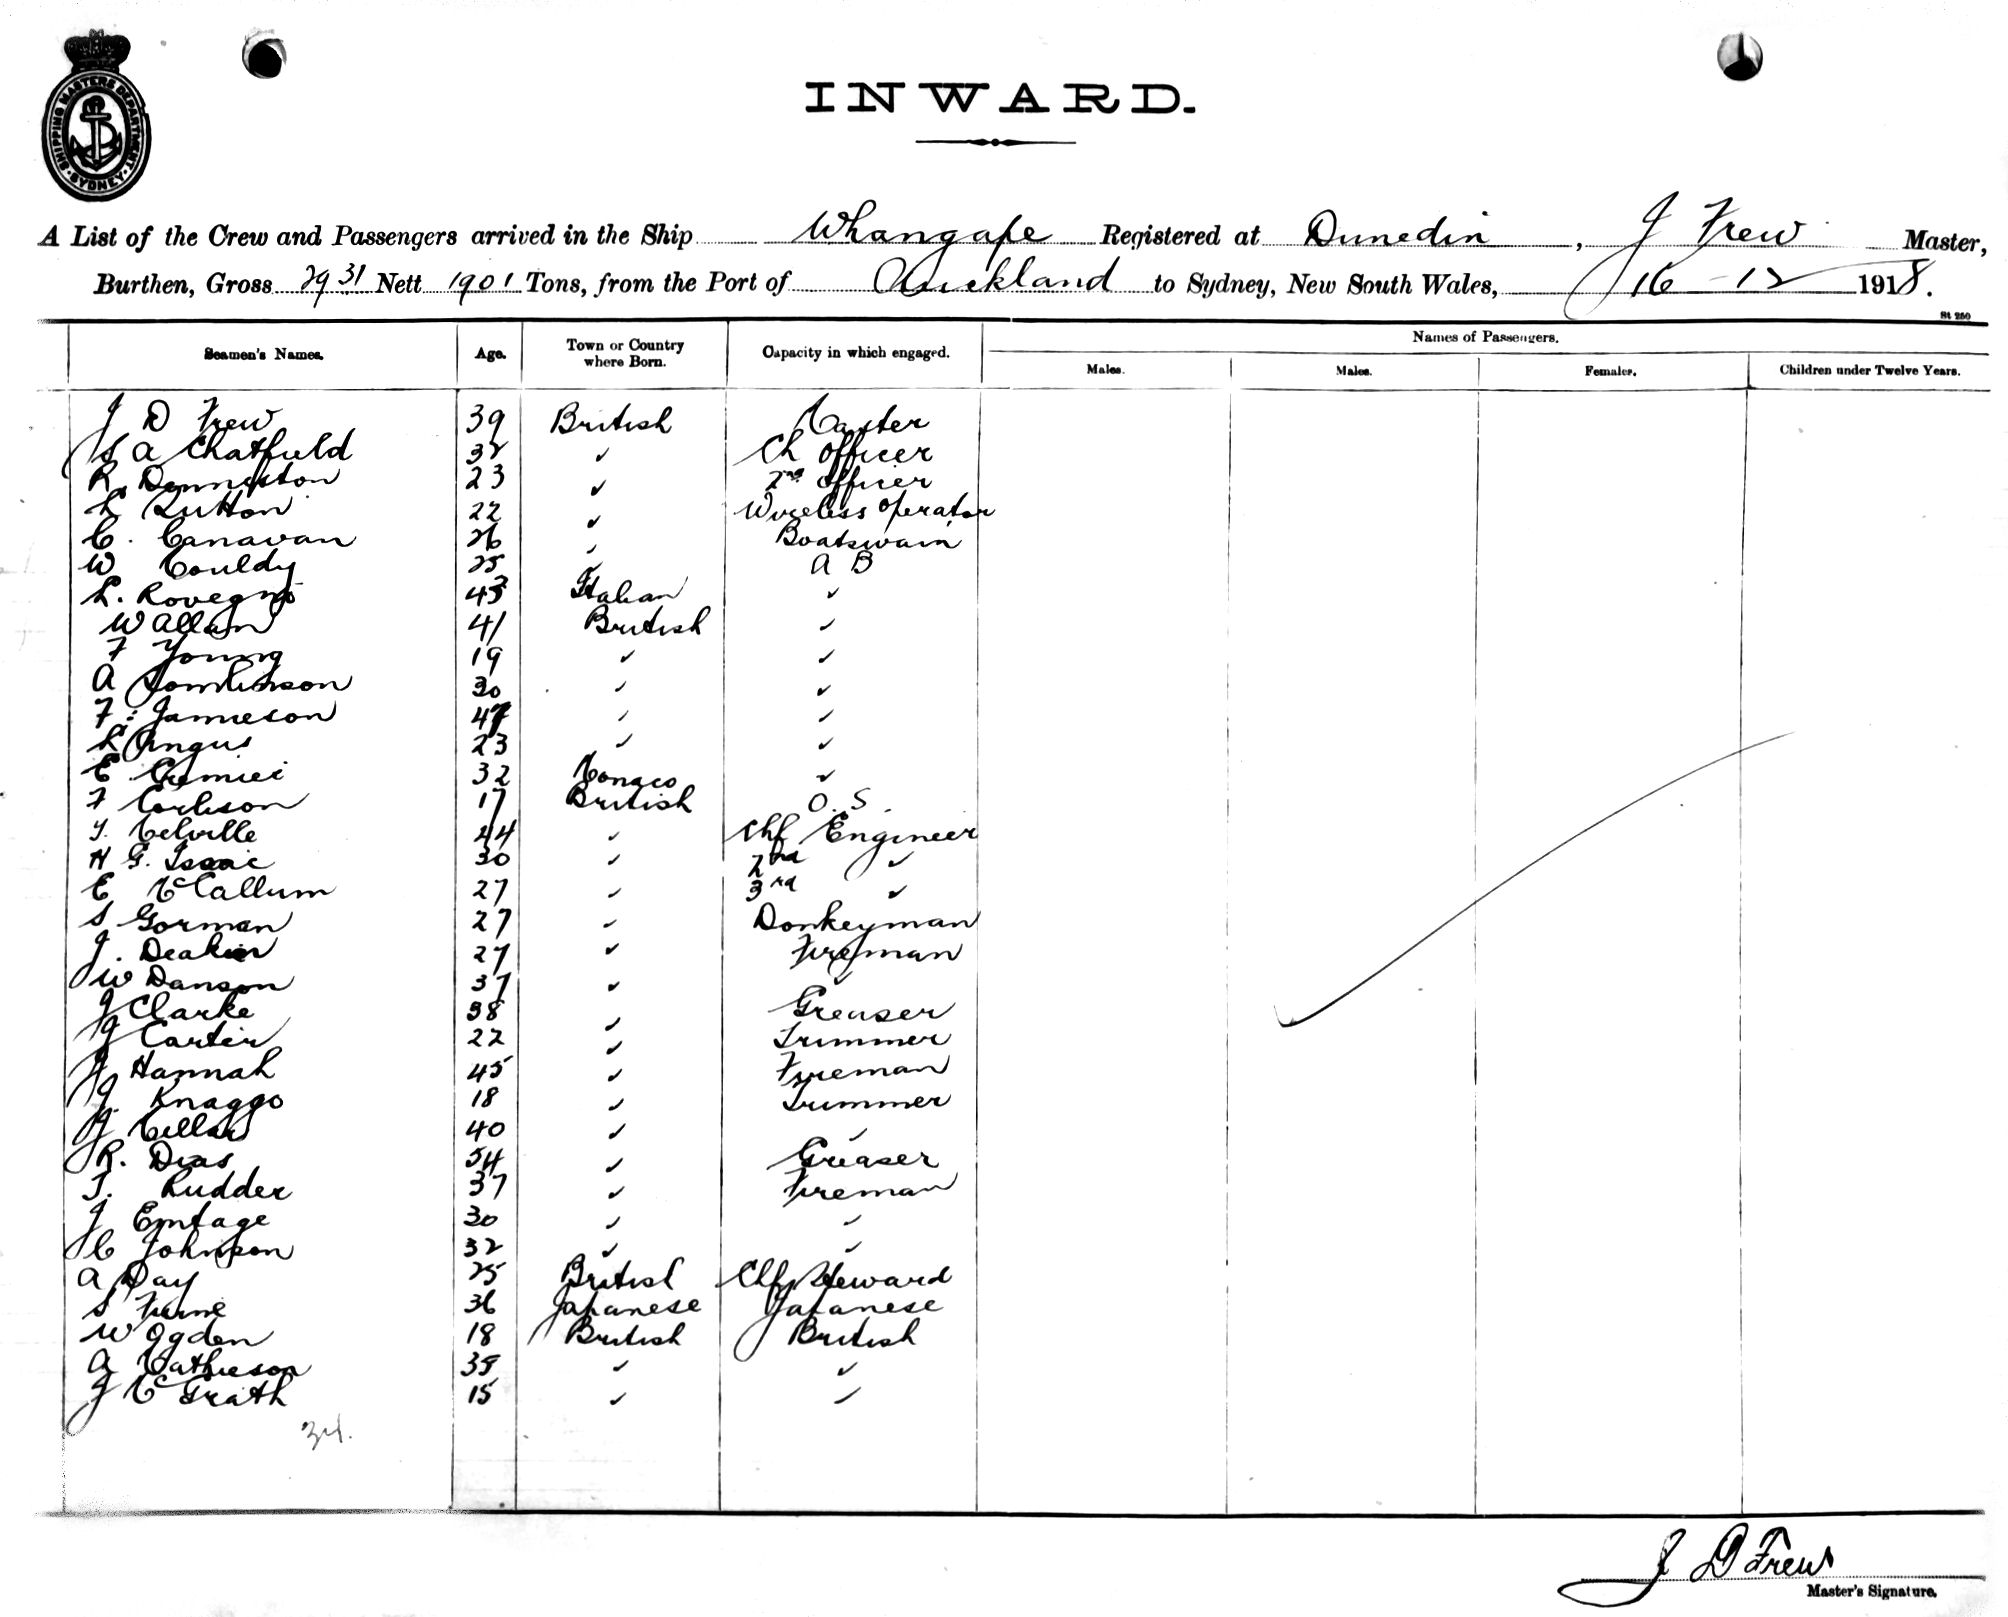 SHIPPING MASTERS DEPARTMENT SYDNEY
INWARD.
A List of the Crew and Passengers arrived in the Ship Whangape Registered at Dunedin, J Frew Master,
Burthen, Gross 2931 Nett 1901 Tons, from the Port of Auckland to Sydney, New South Wales, 16-12 1918.
St 250
Seamen's Names. Age. Town or Country where Born. Capacity in which engaged. Names of Passengers.
Males. Males. Females. Children under Twelve Years.
J D Frew 39 British Master
S A Chatfield 32 ✓ Ch Officer
R. Denniston 23 ✓ 2nd Officer
L Sutton 22 ✓ Wireless Operator
C. Canavan 26 ✓ Boatswain
W Couldy 25 ✓ A B
L. Rovegno 43 Italian ✓
W Allan 41 British ✓
F Young 19 ✓ ✓
A Tomlinson 30 ✓ ✓
F. Jamieson 47 ✓ ✓
L Angus 23 ✓ ✓
E 32 Monaco ✓
F Carlson 17 British O.S.
T. Melville 44 ✓ Chf Engineer
H G. Isaac 30 ✓ 2nd ✓
E McCallum 27 ✓ 3rd ✓
S Gorman 27 ✓ Donkeyman
J. Deakin 27 ✓ Fireman
W Danson 37 ✓ ✓
J Clarke 38 ✓ Greaser
J Carter 22 ✓ Trimmer
J Hannah 45 ✓ Fireman
J. Knaggs 18 ✓ Trimmer
J Mellar 40 ✓ ✓
R. Dias 54 ✓ Greaser
T. Rudder 37 ✓ Fireman
J Emtage 30 ✓ ✓
C Johnson 32 ✓ ✓
A Day 25 British Chf Steward
S 36 Japanese Japanese
W Ogden 18 British British
A Mathieson 35 ✓ ✓
J McGrath 15 ✓ ✓
34.
J D Frew
Master's Signature.